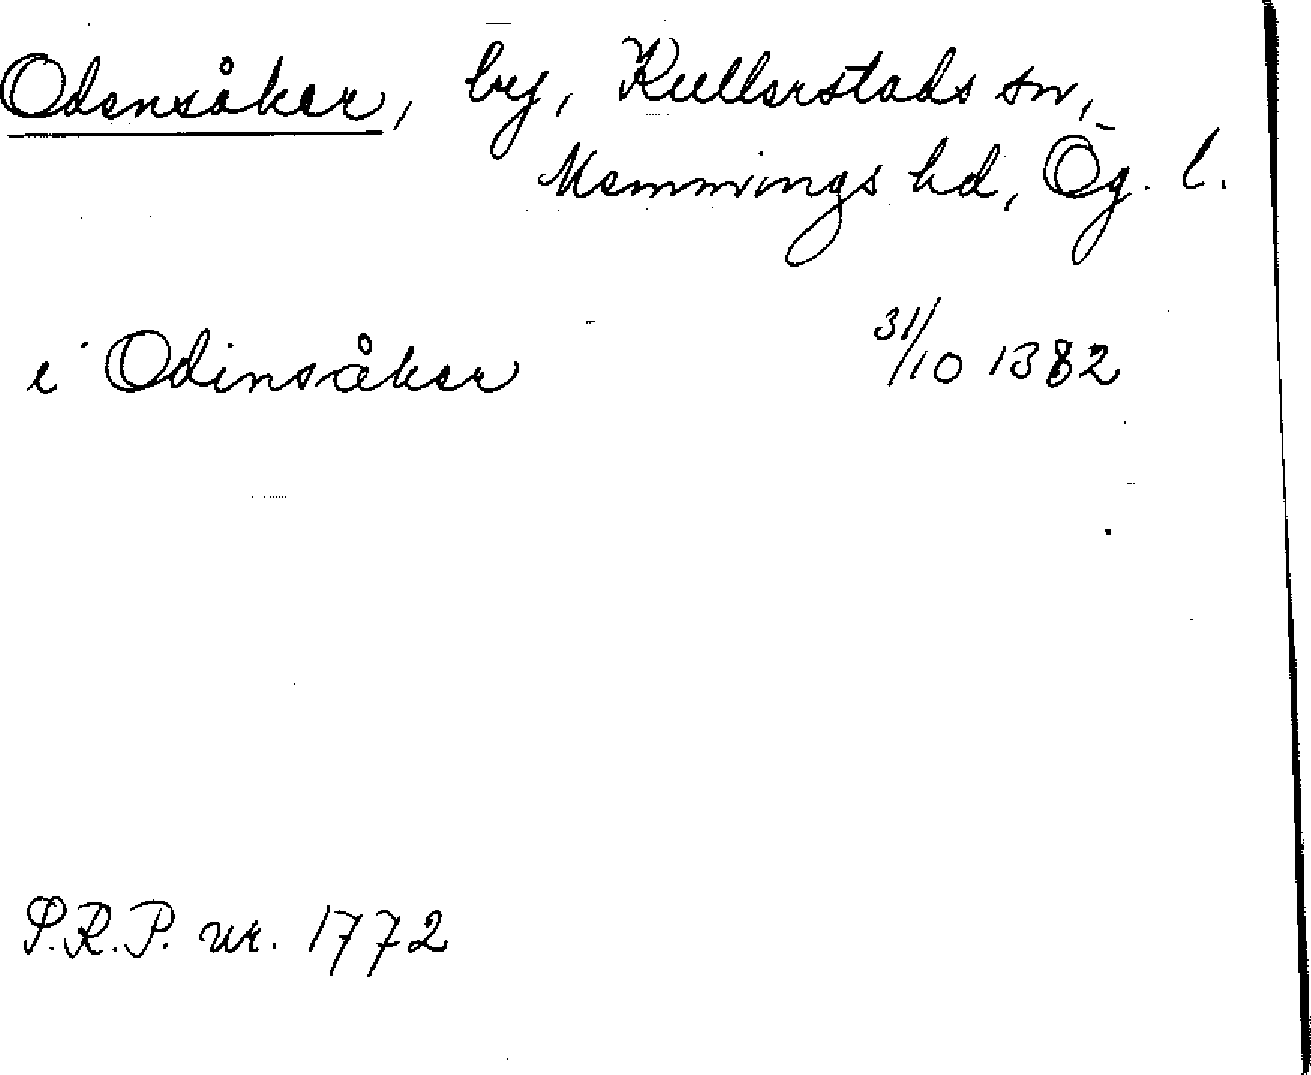 Odensåker, by, Kullerstads sn,
Memmings hd, Ög. l.
i Odinsåker 31/10 1382
S.R.P. nr. 1772